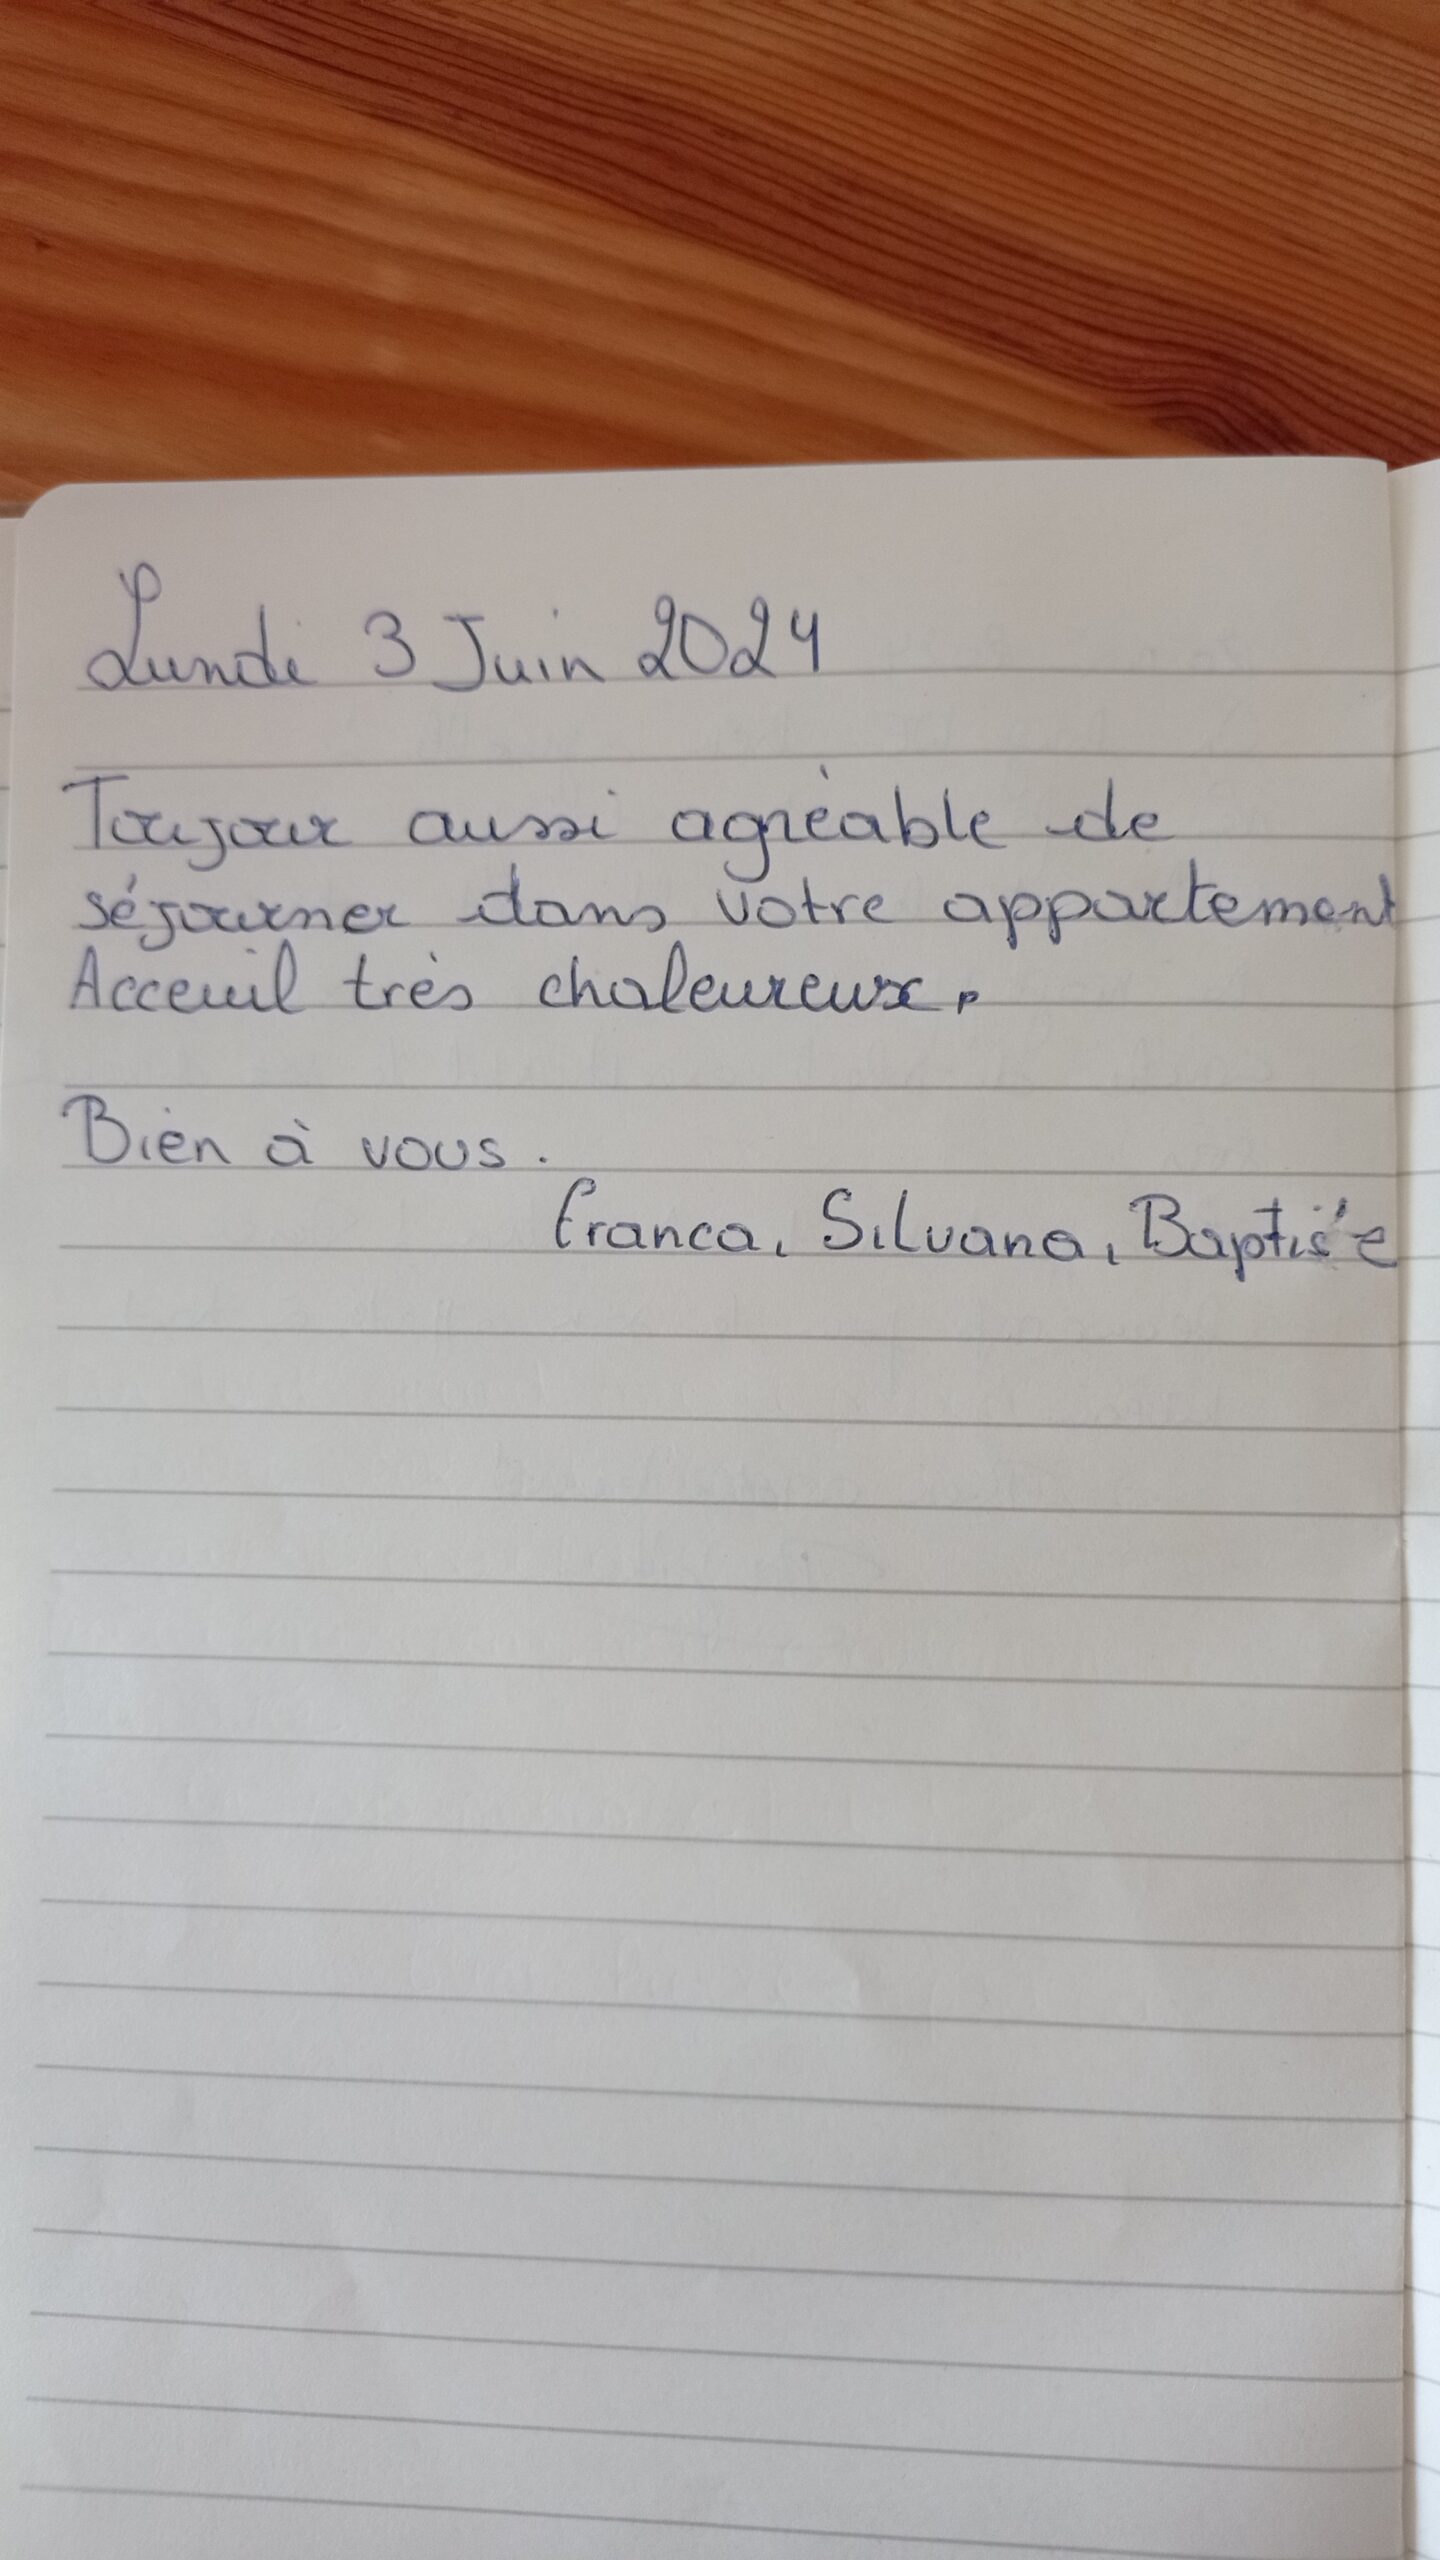 Lundi 3 Juin 2024
Toujour aussi agréable de
séjourner dans votre appartement
Acceuil très chaleureux.
Bien à vous.
Franca, Silvana, Baptiste